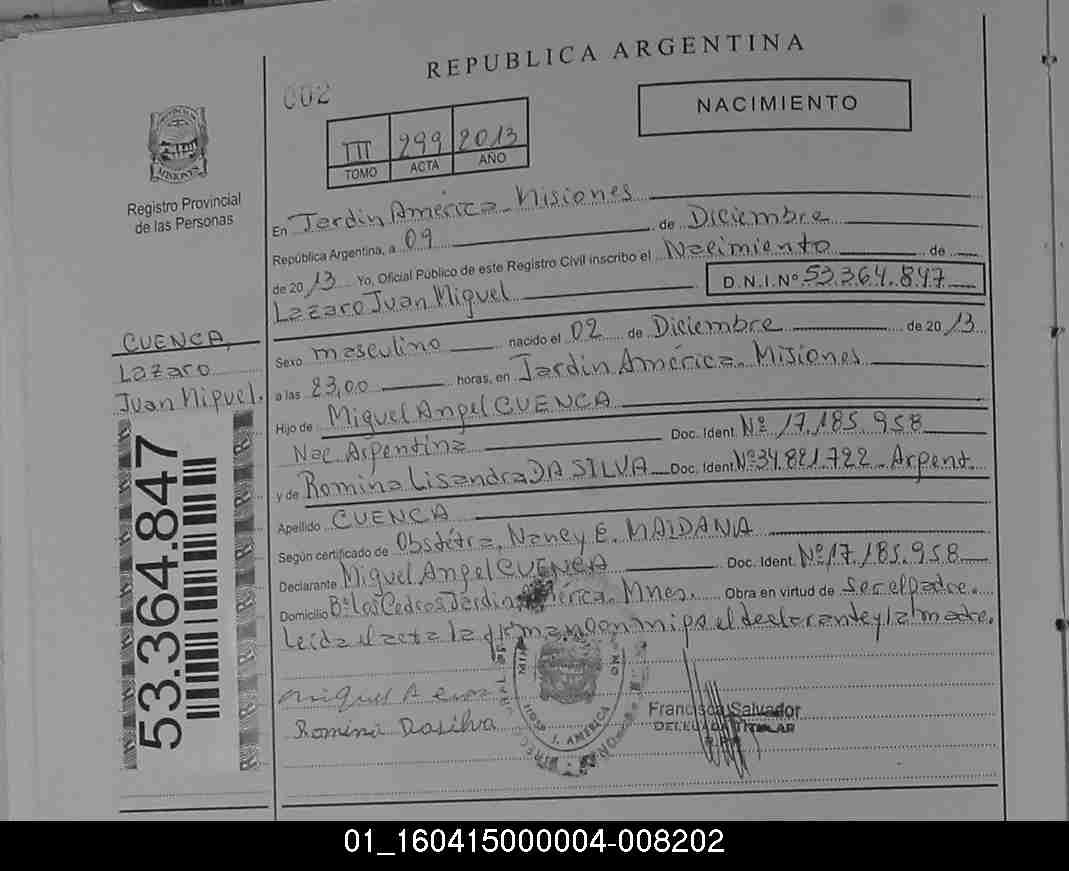 REPUBLICA ARGENTINA
002
NACIMIENTO
III 299 2013
TOMO ACTA AÑO
MISIONES
Registro Provincial
de las Personas
En Jardin América - Misiones
República Argentina, a 09 de Diciembre
de 2013 Yo, Oficial Público de este Registro Civil inscribo el Nacimiento de
Lazaro Juan Miguel D.N.I.Nº 53.364.847
CUENCA,
Lazaro
Juan Miguel.
Sexo masculino nacido el 02 de Diciembre de 2013
a las 23,00 horas, en Jardin América. Misiones
Hijo de Miguel Angel CUENCA
Nac. Argentina Doc. Ident. Nº 17.185.958
y de Romina Lisandra DA SILVA Doc. Ident. Nº 34.821.722 - Argent.
Apellido CUENCA
Según certificado de Obstétra, Nancy E. MAIDANA
Declarante Miguel Angel CUENCA Doc. Ident. Nº 17.185.958
Domicilio Bº Los Cedros Jardin América. Mnes. Obra en virtud de ser el Padre.
Leida el acta la firman conmigo el declarante y la madre.
53.364.847
Miguel A
Romina Dasilva
J. AMERICA
Francisca Salvador
DELEGADA TITULAR
01_160415000004-008202